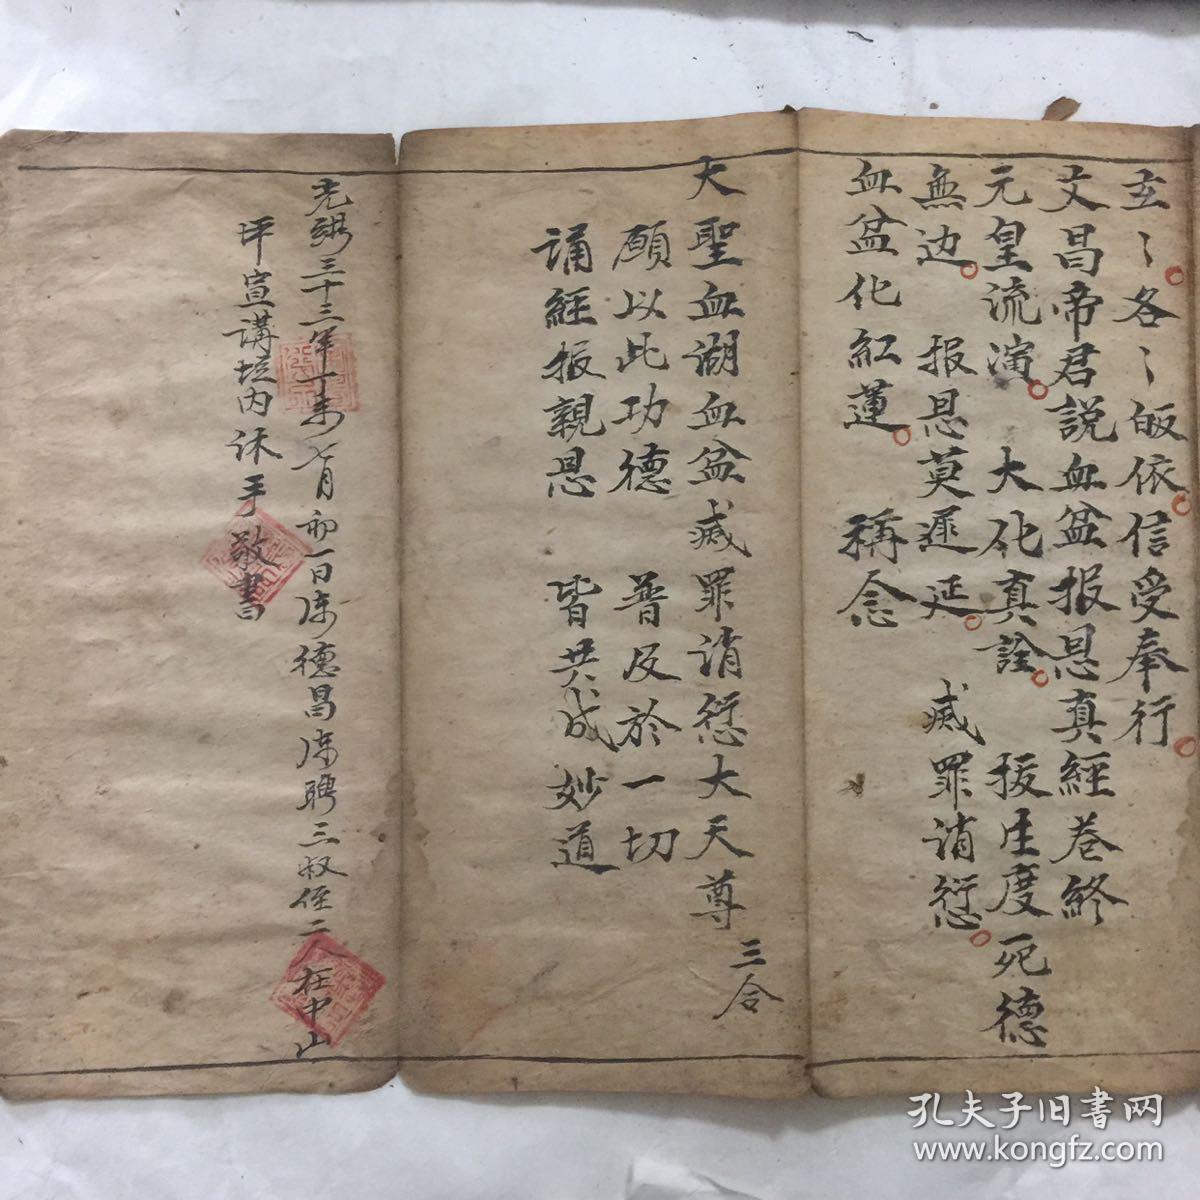 玄〻各〻皈依信受奉行
文昌帝君説血盆报恩真經卷終
元皇流演 大化真詮 拔生度死德
無边 报恩莫遲延 㓕罪消愆
血盆化紅蓮 稱念
大聖血湖血盆㓕罪消愆大天尊 三合
願以此功德 普及於一切
誦經报親恩 皆共成妙道
光緒三十三年丁未七月初一日陳德昌陳聘三叔侄二人在中山
坪宣講坛内沐手敬書
孔夫子旧書网
www.kongfz.com